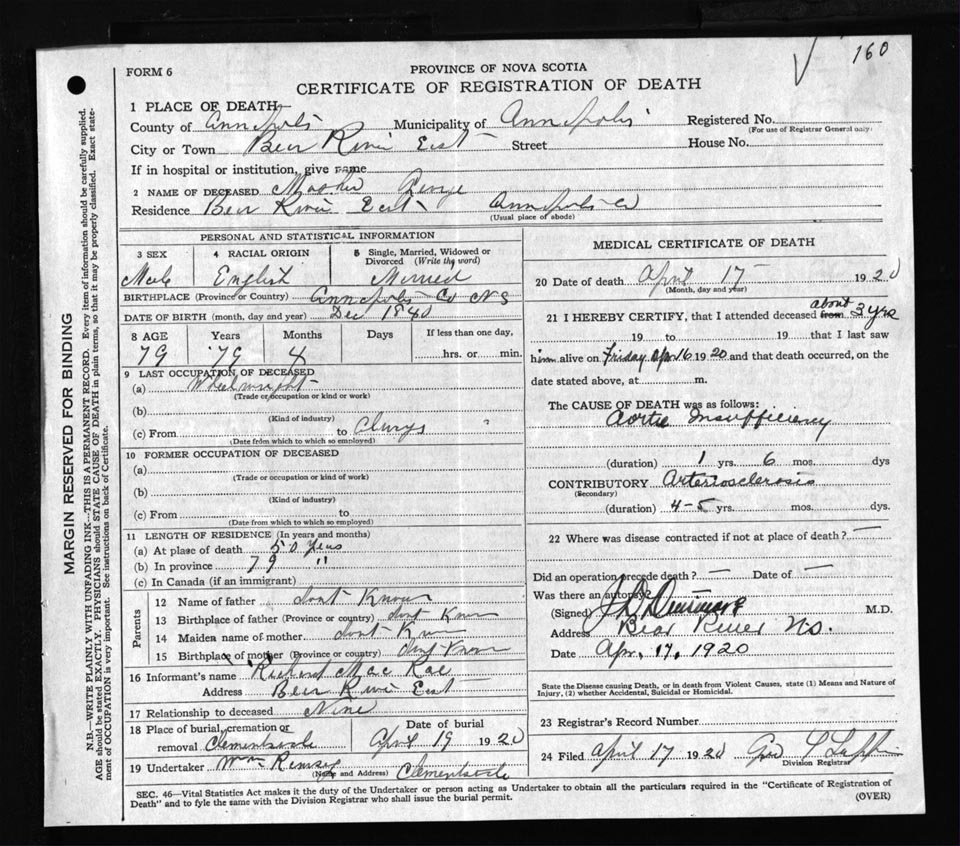 160
FORM 6
PROVINCE OF NOVA SCOTIA
CERTIFICATE OF REGISTRATION OF DEATH
1 PLACE OF DEATH—
County of Annapolis Municipality of Annapolis Registered No.
(For use of Registrar General only)
City or Town Bear River East Street House No.
If in hospital or institution, give name
2 NAME OF DECEASED George
Residence Bear River East Annapolis Co
(Usual place of abode)
PERSONAL AND STATISTICAL INFORMATION
3 SEX 4 RACIAL ORIGIN 5 Single, Married, Widowed or Divorced (Write the word)
Male English Married
BIRTHPLACE (Province or Country) Annapolis Co N S
DATE OF BIRTH (month, day and year) Dec 1840
8 AGE Years Months Days If less than one day,
79 79 4 hrs. or min.
9 LAST OCCUPATION OF DECEASED
(a) Wheelwright
(Trade or occupation or kind or work)
(b)
(Kind of industry)
(c) From to Always
(Date from which to which so employed)
10 FORMER OCCUPATION OF DECEASED
(a)
(Trade or occupation or kind of work)
(b)
(Kind of industry)
(c) From to
(Date from which to which so employed)
11 LENGTH OF RESIDENCE (In years and months)
(a) At place of death 50 years
(b) In province 79 "
(c) In Canada (if an immigrant)
Parents
12 Name of father dont Know
13 Birthplace of father (Province or country) dont Know
14 Maiden name of mother dont Know
15 Birthplace of mother (Province or country) dont Know
16 Informant's name Richard Mac Rae
Address Bear River East
17 Relationship to deceased None
18 Place of burial, cremation or removal Clementsvale
Date of burial April 19 1920
19 Undertaker Wm
(Name and Address) Clementsvale
MEDICAL CERTIFICATE OF DEATH
20 Date of death April 17 1920
(Month, day and year)
21 I HEREBY CERTIFY, that I attended deceased from about 3 yrs
19 to 19 that I last saw
him alive on Friday Apr 16 1920 and that death occurred, on the
date stated above, at m.
The CAUSE OF DEATH was as follows:
Aortic Insufficiency
(duration) 1 yrs. 6 mos. dys
CONTRIBUTORY Arteriosclerosis
(Secondary)
(duration) 4-5 yrs. mos. dys.
22 Where was disease contracted if not at place of death? —
Did an operation precede death? — Date of —
Was there an autopsy?
(Signed) M.D.
Address Bear River N.S.
Date Apr. 17, 1920
State the Disease causing Death, or in death from Violent Causes, state (1) Means and Nature of
Injury, (2) whether Accidental, Suicidal or Homicidal.
23 Registrar's Record Number
24 Filed April 17 1920
Division Registrar
SEC. 46—Vital Statistics Act makes it the duty of the Undertaker or person acting as Undertaker to obtain all the particulars required in the "Certificate of Registration of
Death" and to fyle the same with the Division Registrar who shall issue the burial permit.
(OVER)
MARGIN RESERVED FOR BINDING
N.B.—WRITE PLAINLY WITH UNFADING INK—THIS IS A PERMANENT RECORD. Every item of information should be carefully supplied.
AGE should be stated EXACTLY. PHYSICIANS should STATE CAUSE OF DEATH in plain terms, so that it may be properly classified. Exact state-
ment of OCCUPATION is very important. See instructions on back of Certificate.